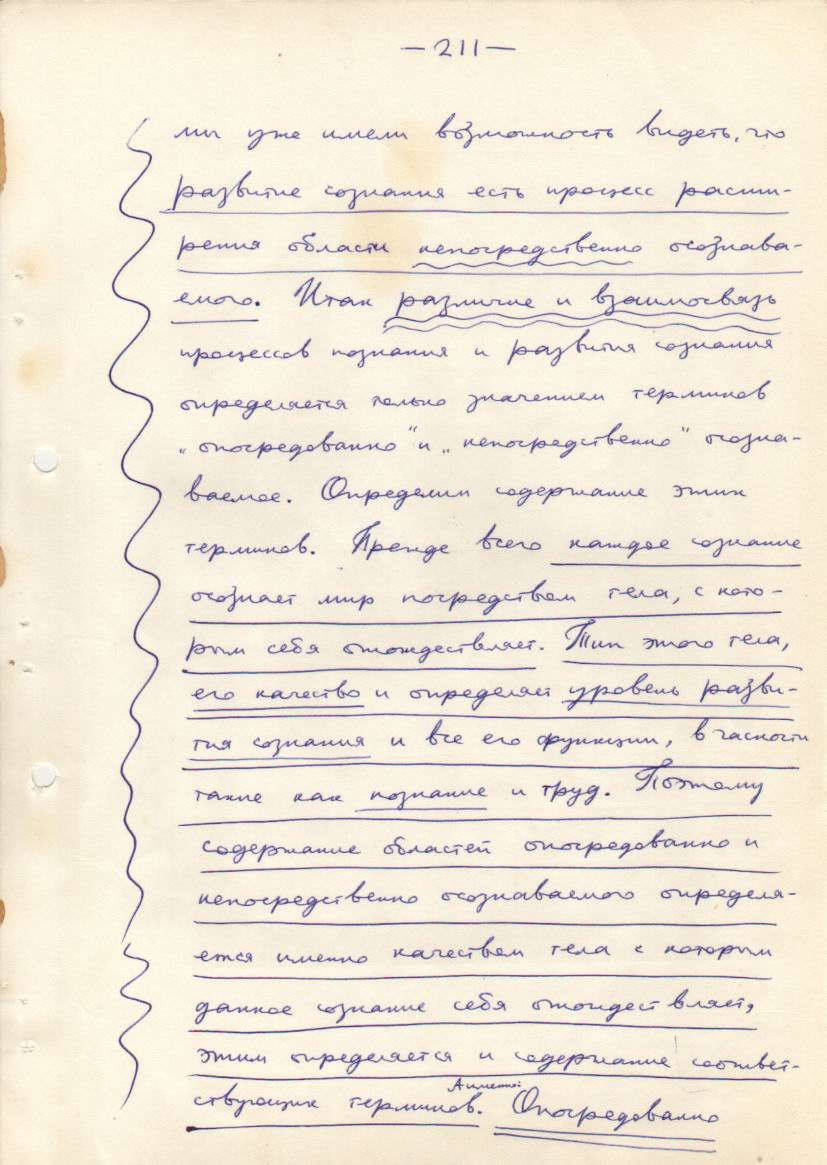 — 211 —
мы уже имели возможность видеть, что
развитие сознания есть процесс расши-
рения области непосредственно осознава-
емого. Итак различие и взаимосвязь
процессов познания и развития сознания
определяется только значением терминов
„опосредованно" и „непосредственно" осозна-
ваемое. Определим содержание этих
терминов. Прежде всего каждое сознание
осознает мир посредством тела, с кото-
рым себя отождествляет. Тип этого тела,
его качество и определяет уровень разви-
тия сознания и все его функции, в часности
такие как познание и труд. Поэтому
содержание областей опосредованно и
непосредственно осознаваемого определя-
ется именно качеством тела с которым
данное сознание себя отождествляет,
этим определяется и содержание соответ-
ствующих терминов. А именно: Опосредованно